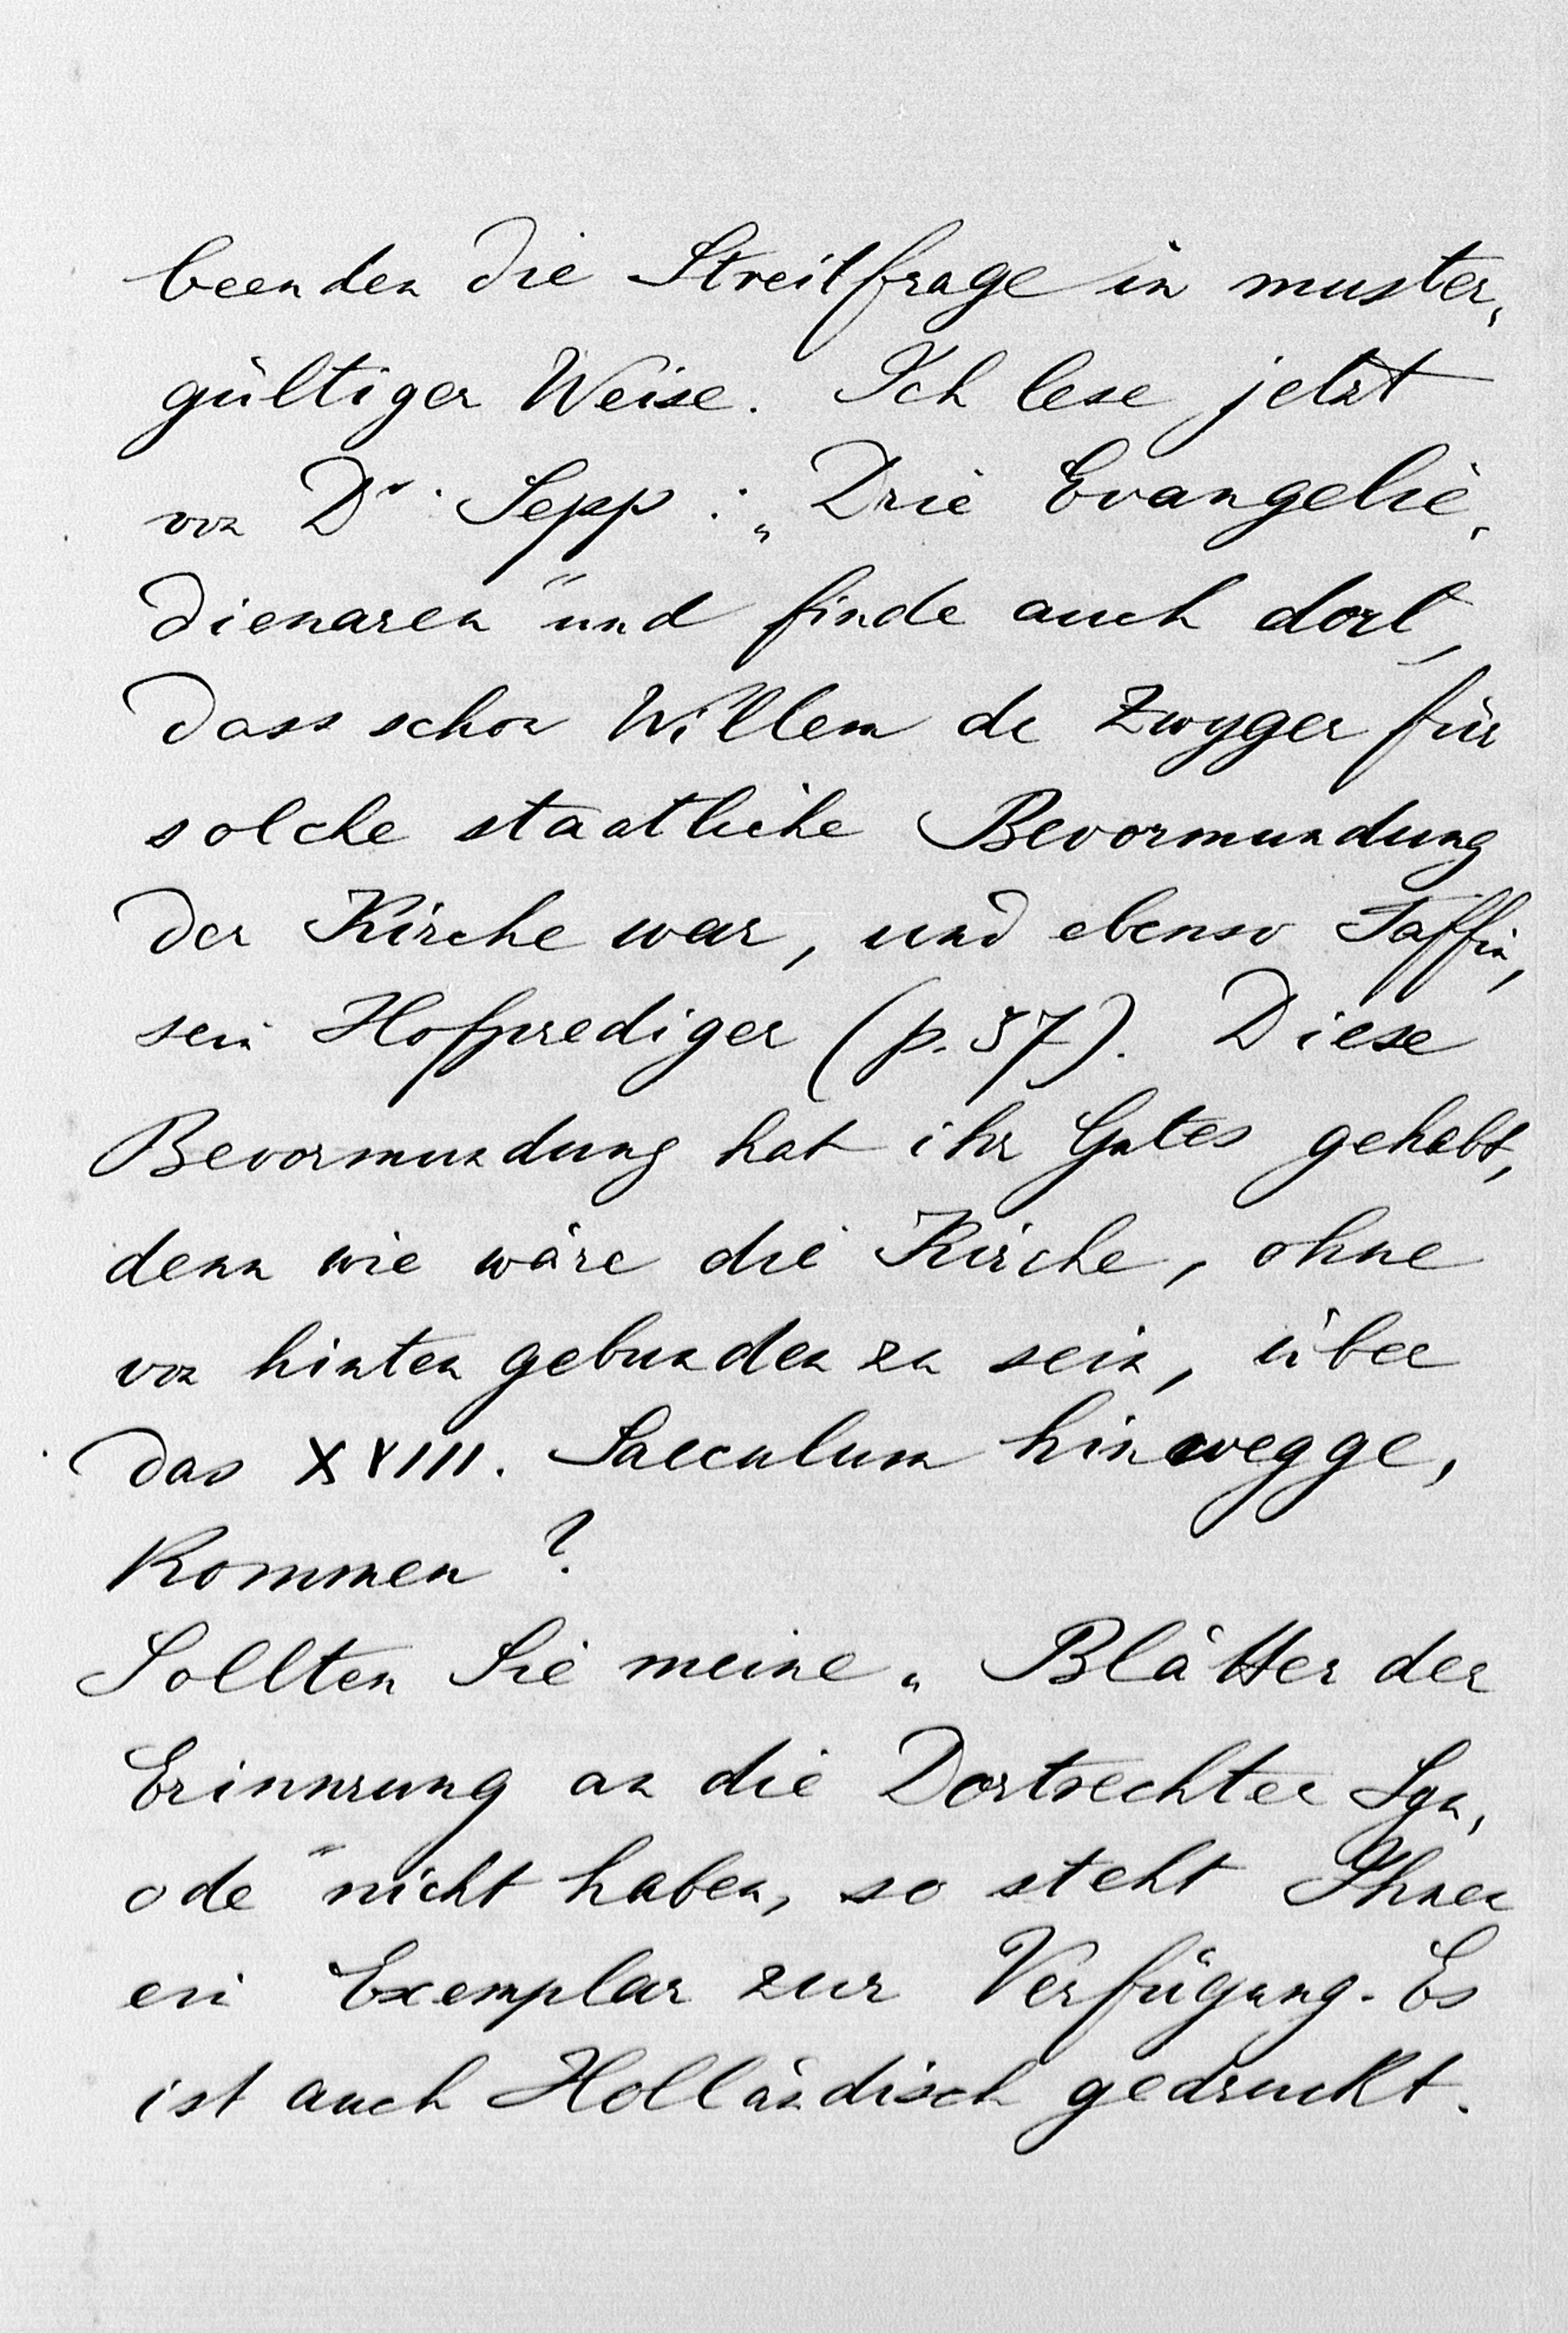 beenden die Streitfrage in muster,
gültiger Weise. Ich lese jetzt
von Dr. Sepp: „Drie Evangelie,
dienaren" und finde auch dort,
dass schon Willem de Zwyger für
solche staatliche Bevormundung
der Kirche war, und ebenso Taffin,
sein Hofprediger (p. 57). Diese
Bevormundung hat ihr Gutes gehabt,
denn wie wäre die Kirche, ohne
von hinten gebunden zu sein, über
das XVIII. Saeculum hinwegge,
kommen?
Sollten Sie meine „Blätter der
Erinnrung an die Dortrechter Syn,
ode" nicht haben, so steht Ihnen
ein Exemplar zur Verfügung. Es
ist auch Holländisch gedruckt.